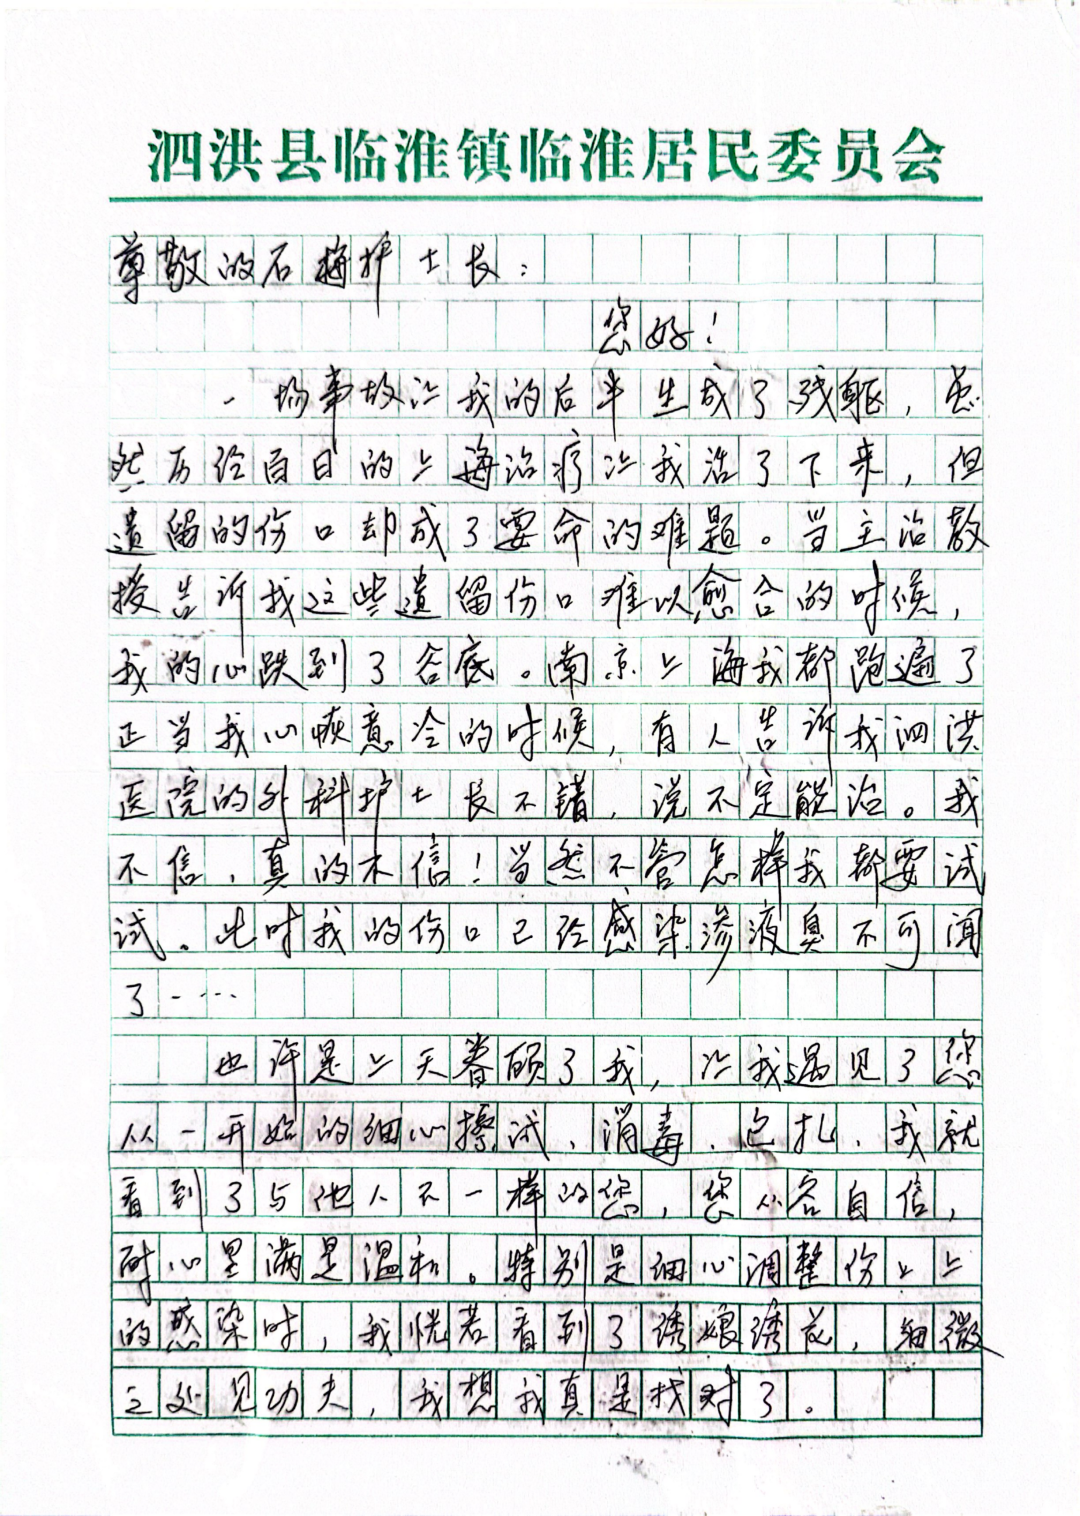 泗洪县临淮镇临淮居民委员会
尊敬的石梅护士长：
您好！
一场事故让我的后半生成了残躯，虽
然历经百日的上海治疗让我活了下来，但
遗留的伤口却成了要命的难题。当主治教
授告诉我这些遗留伤口难以愈合的时候，
我的心跌到了谷底。南京上海我都跑遍了
正当我心灰意冷的时候，有人告诉我泗洪
医院的外科护士长不错，说不定能治。我
不信，真的不信！当然不管怎样我都要试
试。此时我的伤口已经感染渗液臭不可闻
了……
也许是上天眷顾了我，让我遇见了您
从一开始的细心擦试、消毒、包扎，我就
看到了与他人不一样的您，您从容自信，
耐心里满是温和。特别是细心调整伤口上
的感染时，我恍若看到了绣娘绣花，细微
之处见功夫，我想我真是找对了。